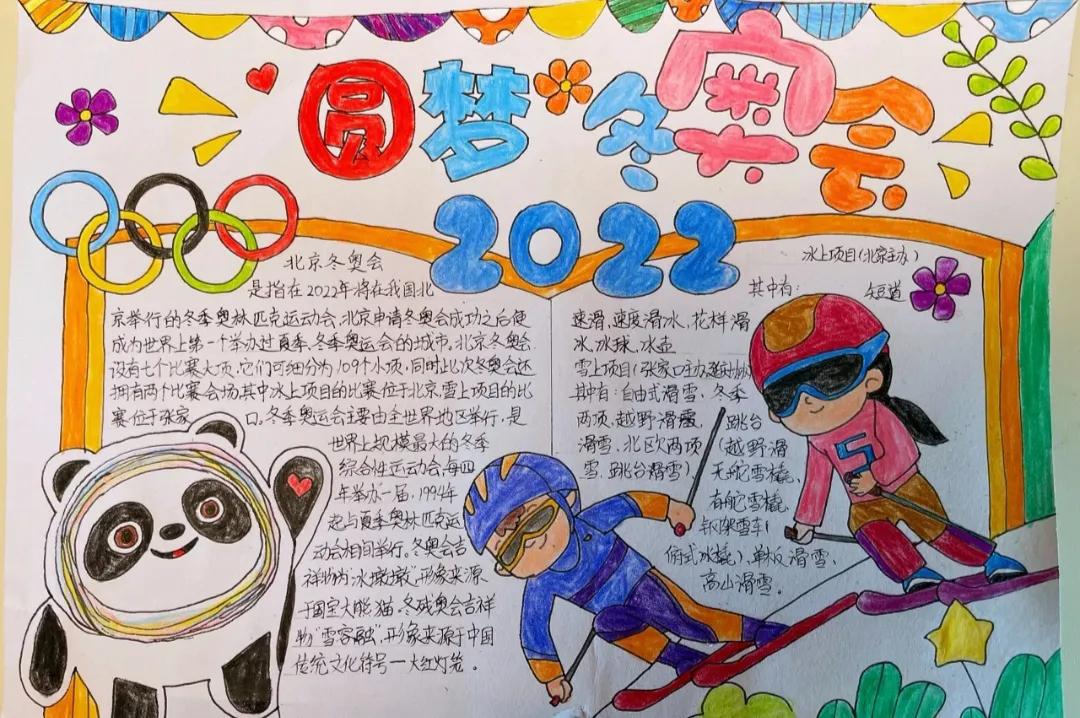 圆梦冬奥会
2022
北京冬奥会
是指在2022年将在我国北
京举行的冬季奥林匹克运动会,北京申请冬奥会成功之后使
成为世界上第一个举办过夏季、冬季奥运会的城市。北京冬奥会
设有七个比赛大项,它们可细分为109个小项,同时此次冬奥会还
拥有两个比赛会场,其中冰上项目的比赛位于北京,雪上项目的比
赛位于张家口。冬季奥运会主要由全世界地区举行,是
世界上规模最大的冬季
综合性运动会,每四
年举办一届,1994年
起与夏季奥林匹克运
动会相间举行。冬奥会吉
祥物为“冰墩墩”,形象来源
于国宝大熊猫。冬残奥会吉祥
物“雪容融”,形象来源于中国
传统文化符号一大红灯笼。
冰上项目(北京主办)
其中有: 短道
速滑,速度滑冰,花样滑
冰,冰球,冰壶
雪上项目(张家口主办
其中有:自由式滑雪、冬季
两项,越野滑雪, 跳台
滑雪、北欧两项 (越野滑
雪、跳台滑雪) 无舵雪橇,
有舵雪橇
钢架雪车(
俯式冰橇),单板滑雪、
高山滑雪。
5